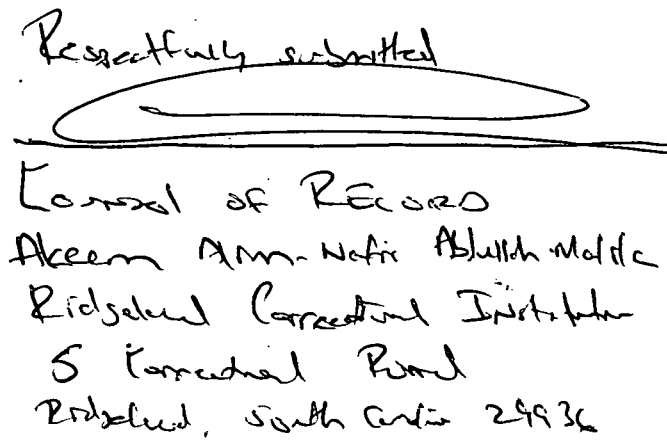 Respectfully submitted
Counsel of RECORD
Akeem Abdullah-Malik
Ridgeland Correctional Institution
5 Correctional Road
Ridgeland, South Carolina 29936